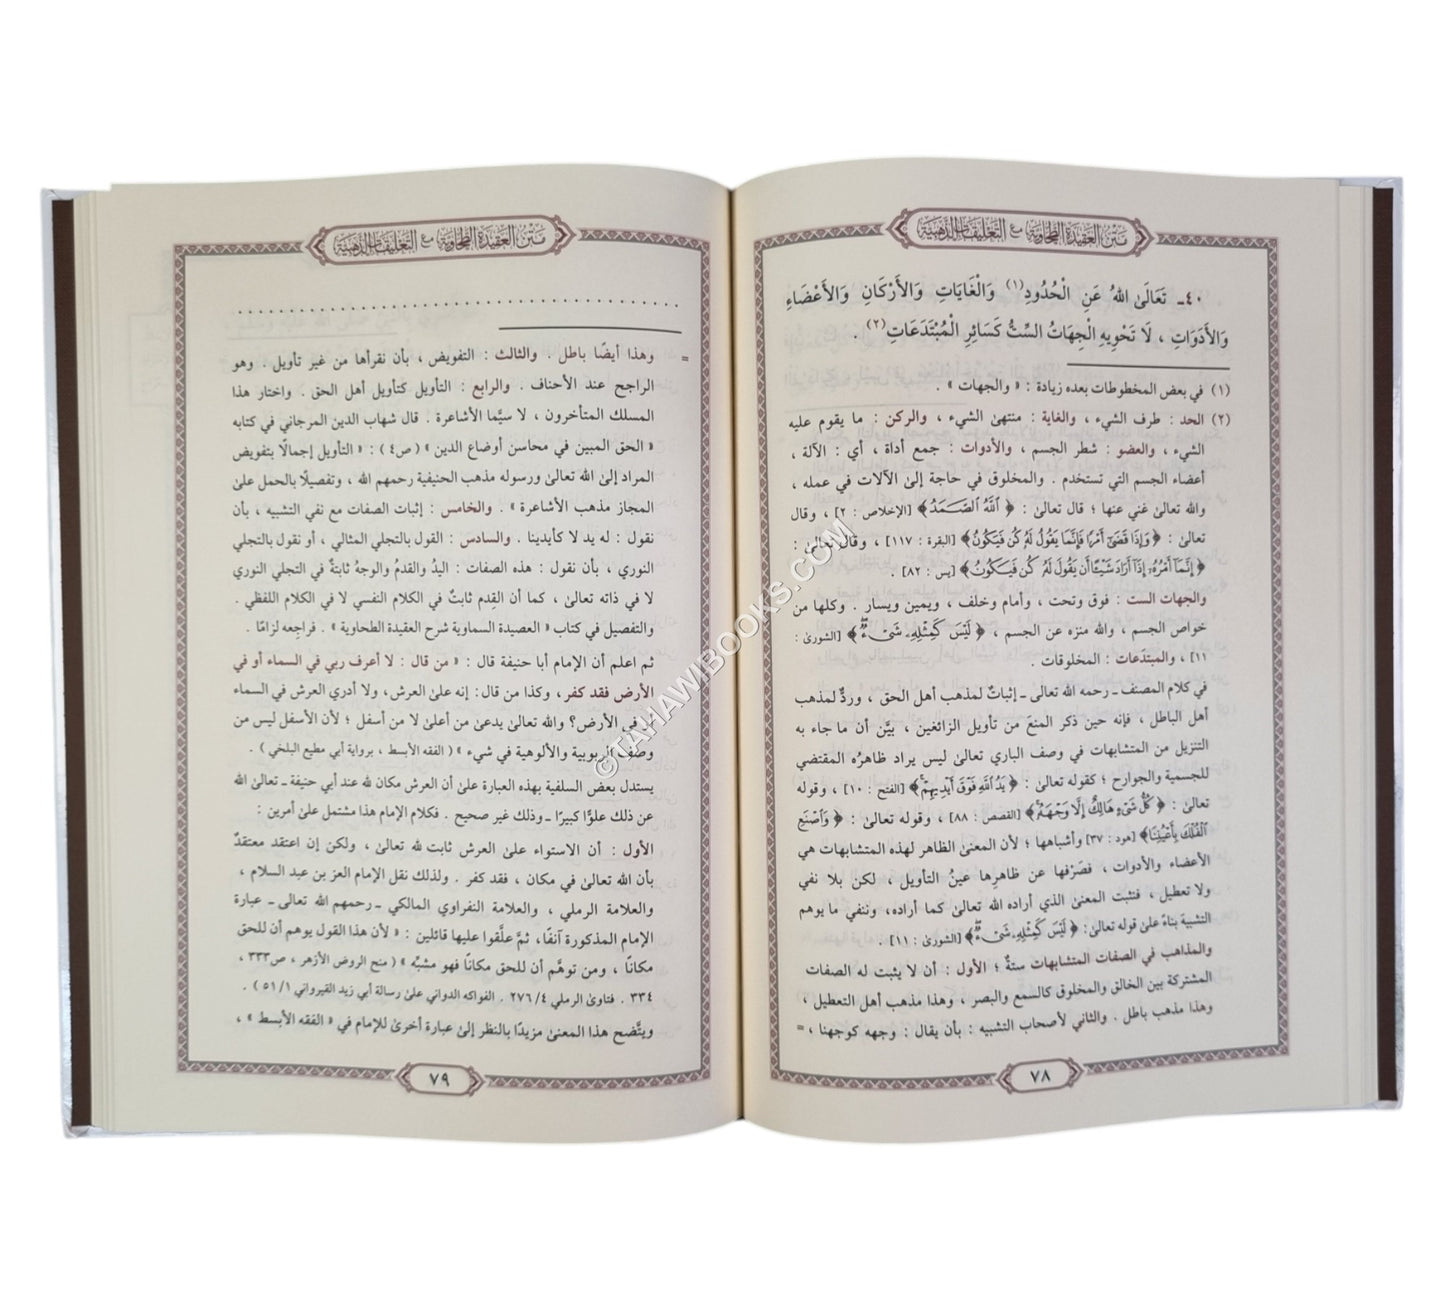 متن العقيدة الطحاوية مع التعليقات الذهبية
٤٠ـ تَعَالَىٰ اللهُ عَنِ الْحُدُودِ(١) وَالْغَايَاتِ وَالْأَرْكَانِ وَالْأَعْضَاءِ
وَالْأَدَوَاتِ ، لَا تَحْوِيهِ الْجِهَاتُ السِّتُّ كَسَائِرِ الْمُبْتَدَعَاتِ(٢) .
(١) في بعض المخطوطات بعده زيادة : « والجهات » .
(٢) الحد : طرف الشيء ، والغاية : منتهىٰ الشيء ، والركن : ما يقوم عليه
الشيء ، والعضو : شطر الجسم ، والأدوات : جمع أداة ، أي : الآلة ،
أعضاء الجسم التي تستخدم . والمخلوق في حاجة إلىٰ الآلات في عمله ،
والله تعالىٰ غني عنها ؛ قال تعالىٰ : ﴿ ٱللَّهُ ٱلصَّمَدُ ﴾ [الإخلاص : ٢] ، وقال
تعالىٰ : ﴿ وَإِذَا قَضَىٰٓ أَمْرًا فَإِنَّمَا يَقُولُ لَهُۥ كُن فَيَكُونُ ﴾ [البقرة : ١١٧] ، وقال تعالىٰ :
﴿ إِنَّمَآ أَمْرُهُۥٓ إِذَآ أَرَادَ شَيْـًٔا أَن يَقُولَ لَهُۥ كُن فَيَكُونُ ﴾ [يس : ٨٢] .
والجهات الست : فوق وتحت ، وأمام وخلف ، ويمين ويسار . وكلها من
خواص الجسم ، والله منزه عن الجسم ، ﴿ لَيْسَ كَمِثْلِهِۦ شَىْءٌ ﴾ [الشورىٰ :
١١] ، والمبتدَعات : المخلوقات .
في كلام المصنف ـ رحمه الله تعالىٰ ـ إثباتٌ لمذهب أهل الحق ، وردٌّ لمذهب
أهل الباطل ، فإنه حين ذكر المنعَ من تأويل الزائغين ، بيَّن أن ما جاء به
التنزيل من المتشابهات في وصف الباري تعالىٰ ليس يراد ظاهرُه المقتضي
للجسمية والجوارح ؛ كقوله تعالىٰ : ﴿ يَدُ ٱللَّهِ فَوْقَ أَيْدِيهِمْ ﴾ [الفتح : ١٠] ، وقوله
تعالىٰ : ﴿ كُلُّ شَىْءٍ هَالِكٌ إِلَّا وَجْهَهُۥ ﴾ [القصص : ٨٨] ، وقوله تعالىٰ : ﴿ وَٱصْنَعِ
ٱلْفُلْكَ بِأَعْيُنِنَا ﴾ [هود : ٣٧] وأشباهها ؛ لأن المعنىٰ الظاهر لهذه المتشابهات هي
الأعضاء والأدوات ، فصَرْفها عن ظاهرها عينُ التأويل ، لكن بلا نفي
ولا تعطيل ، فنثبت المعنىٰ الذي أراده الله تعالىٰ كما أراده، وننفي ما يوهم
التشبيهَ بناءً علىٰ قوله تعالىٰ: ﴿ لَيْسَ كَمِثْلِهِۦ شَىْءٌ ﴾ [الشورىٰ : ١١] .
والمذاهب في الصفات المتشابهات ستةٌ ؛ الأول : أن لا يثبت له الصفات
المشتركة بين الخالق والمخلوق كالسمع والبصر ، وهذا مذهب أهل التعطيل ،
وهذا مذهب باطل . والثاني لأصحاب التشبيه : بأن يقال : وجهه كوجهنا ، =
٧٨
متن العقيدة الطحاوية مع التعليقات الذهبية
. . . . . . . . . . . . . . . . . . . . . . . . . . . . . . . . . . . . . . . .
= وهذا أيضًا باطل . والثالث : التفويض ، بأن نقرأها من غير تأويل . وهو
الراجح عند الأحناف . والرابع : التأويل كتأويل أهل الحق . واختار هذا
المسلك المتأخرون ، لا سيَّما الأشاعرة . قال شهاب الدين المرجاني في كتابه
« الحق المبين في محاسن أوضاع الدين » ( ص٤ ) : « التأويل إجمالًا بتفويض
المراد إلىٰ الله تعالىٰ ورسوله مذهب الحنيفية رحمهم الله ، وتفصيلًا بالحمل علىٰ
المجاز مذهب الأشاعرة » . والخامس : إثبات الصفات مع نفي التشبيه ، بأن
نقول : له يد لا كأيدينا . والسادس : القول بالتجلي المثالي ، أو نقول بالتجلي
النوري ، بأن نقول : هذه الصفات : اليدُ والقدمُ والوجهُ ثابتةٌ في التجلي النوري
لا في ذاته تعالىٰ ، كما أن القِدم ثابتٌ في الكلام النفسي لا في الكلام اللفظي .
والتفصيل في كتاب « العصيدة السماوية شرح العقيدة الطحاوية » . فراجِعه لزامًا .
ثم اعلم أن الإمام أبا حنيفة قال : « من قال : لا أعرف ربي في السماء أو في
الأرض فقد كفر ، وكذا من قال: إنه علىٰ العرش، ولا أدري العرش في السماء
أو في الأرض؟ والله تعالىٰ يدعىٰ من أعلىٰ لا من أسفل ؛ لأن الأسفل ليس من
وصف الربوبية والألوهية في شيء » ( الفقه الأبسط ، برواية أبي مطيع البلخي ) .
يستدل بعض السلفية بهذه العبارة علىٰ أن العرش مكان لله عند أبي حنيفة ـ تعالىٰ الله
عن ذلك علوًّا كبيرًا ـ وذلك غير صحيح . فكلام الإمام هذا مشتمل علىٰ أمرين :
الأول : أن الاستواء علىٰ العرش ثابت لله تعالىٰ ، ولكن إن اعتقد معتقدٌ
بأن الله تعالىٰ في مكان ، فقد كفر . ولذلك نقل الإمام العز بن عبد السلام ،
والعلامة الرملي ، والعلامة النفراوي المالكي ـ رحمهم الله تعالىٰ ـ عبارة
الإمام المذكورة آنفًا، ثمَّ علَّقوا عليها قائلين : « لأن هذا القول يوهم أن للحق
مكانًا ، ومن توهَّم أن للحق مكانًا فهو مشبِّه » ( منح الروض الأزهر ، ص٣٣٣ ،
٣٣٤ . فتاوىٰ الرملي ٤/ ٢٧٦ . الفواكه الدواني علىٰ رسالة أبي زيد القيرواني ١/ ٥١ ) .
ويتَّضح هذا المعنىٰ مزيدًا بالنظر إلىٰ عبارة أخرىٰ للإمام في « الفقه الأبسط » ،
٧٩
©TAHAWIBOOKS.COM